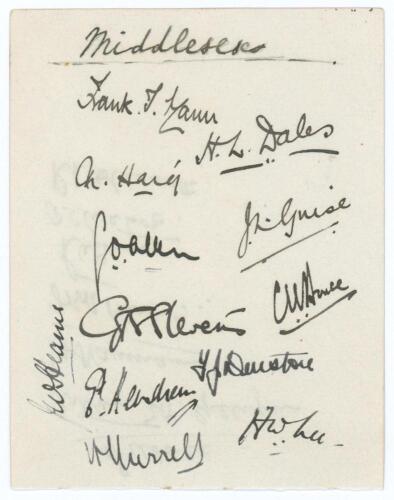 Middlesex
Frank. T. Mann
H. L. Dales
N. Haig
G. O. Allen
J. L. Guise
G.T.S. Stevens
J.W. Hearne
T J Durston
E. Hendren
H Murrell
H W Lee